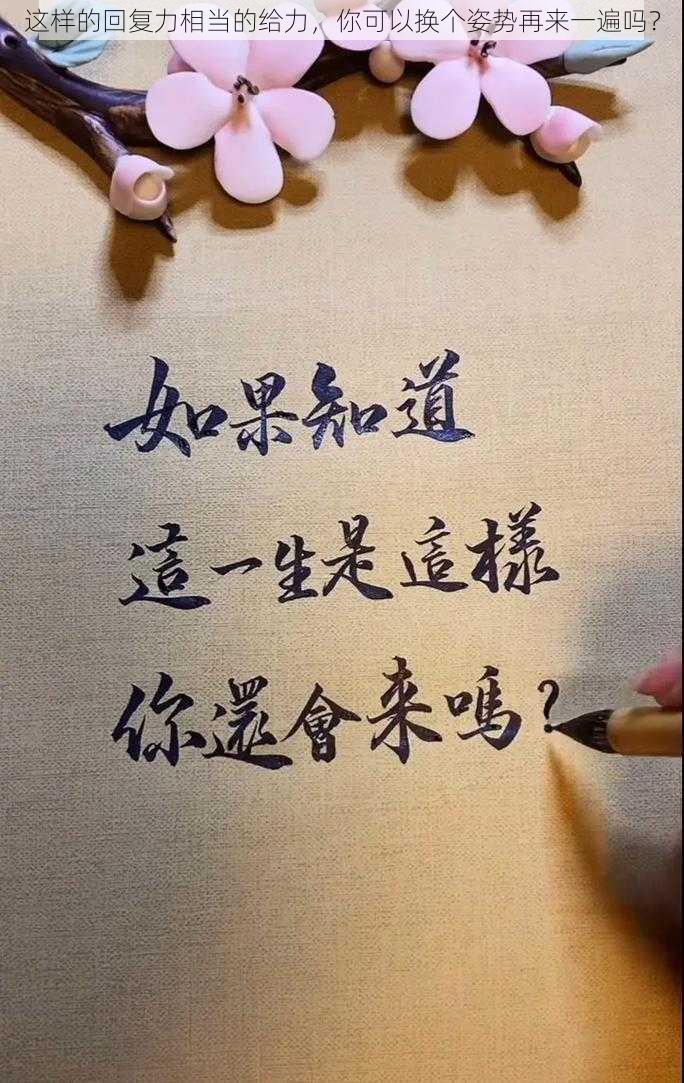 这样的回复力相当的给力，你可以换个姿势再来一遍吗？
如果知道
這一生是這樣
你還會来嗎？